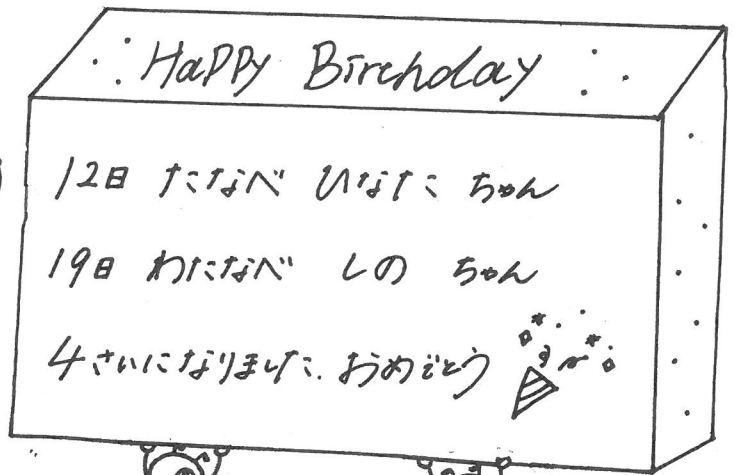 Happy Birthday
12日 たなべ ひなた ちゃん
19日 わたなべ しの ちゃん
4さいになりました.おめでとう